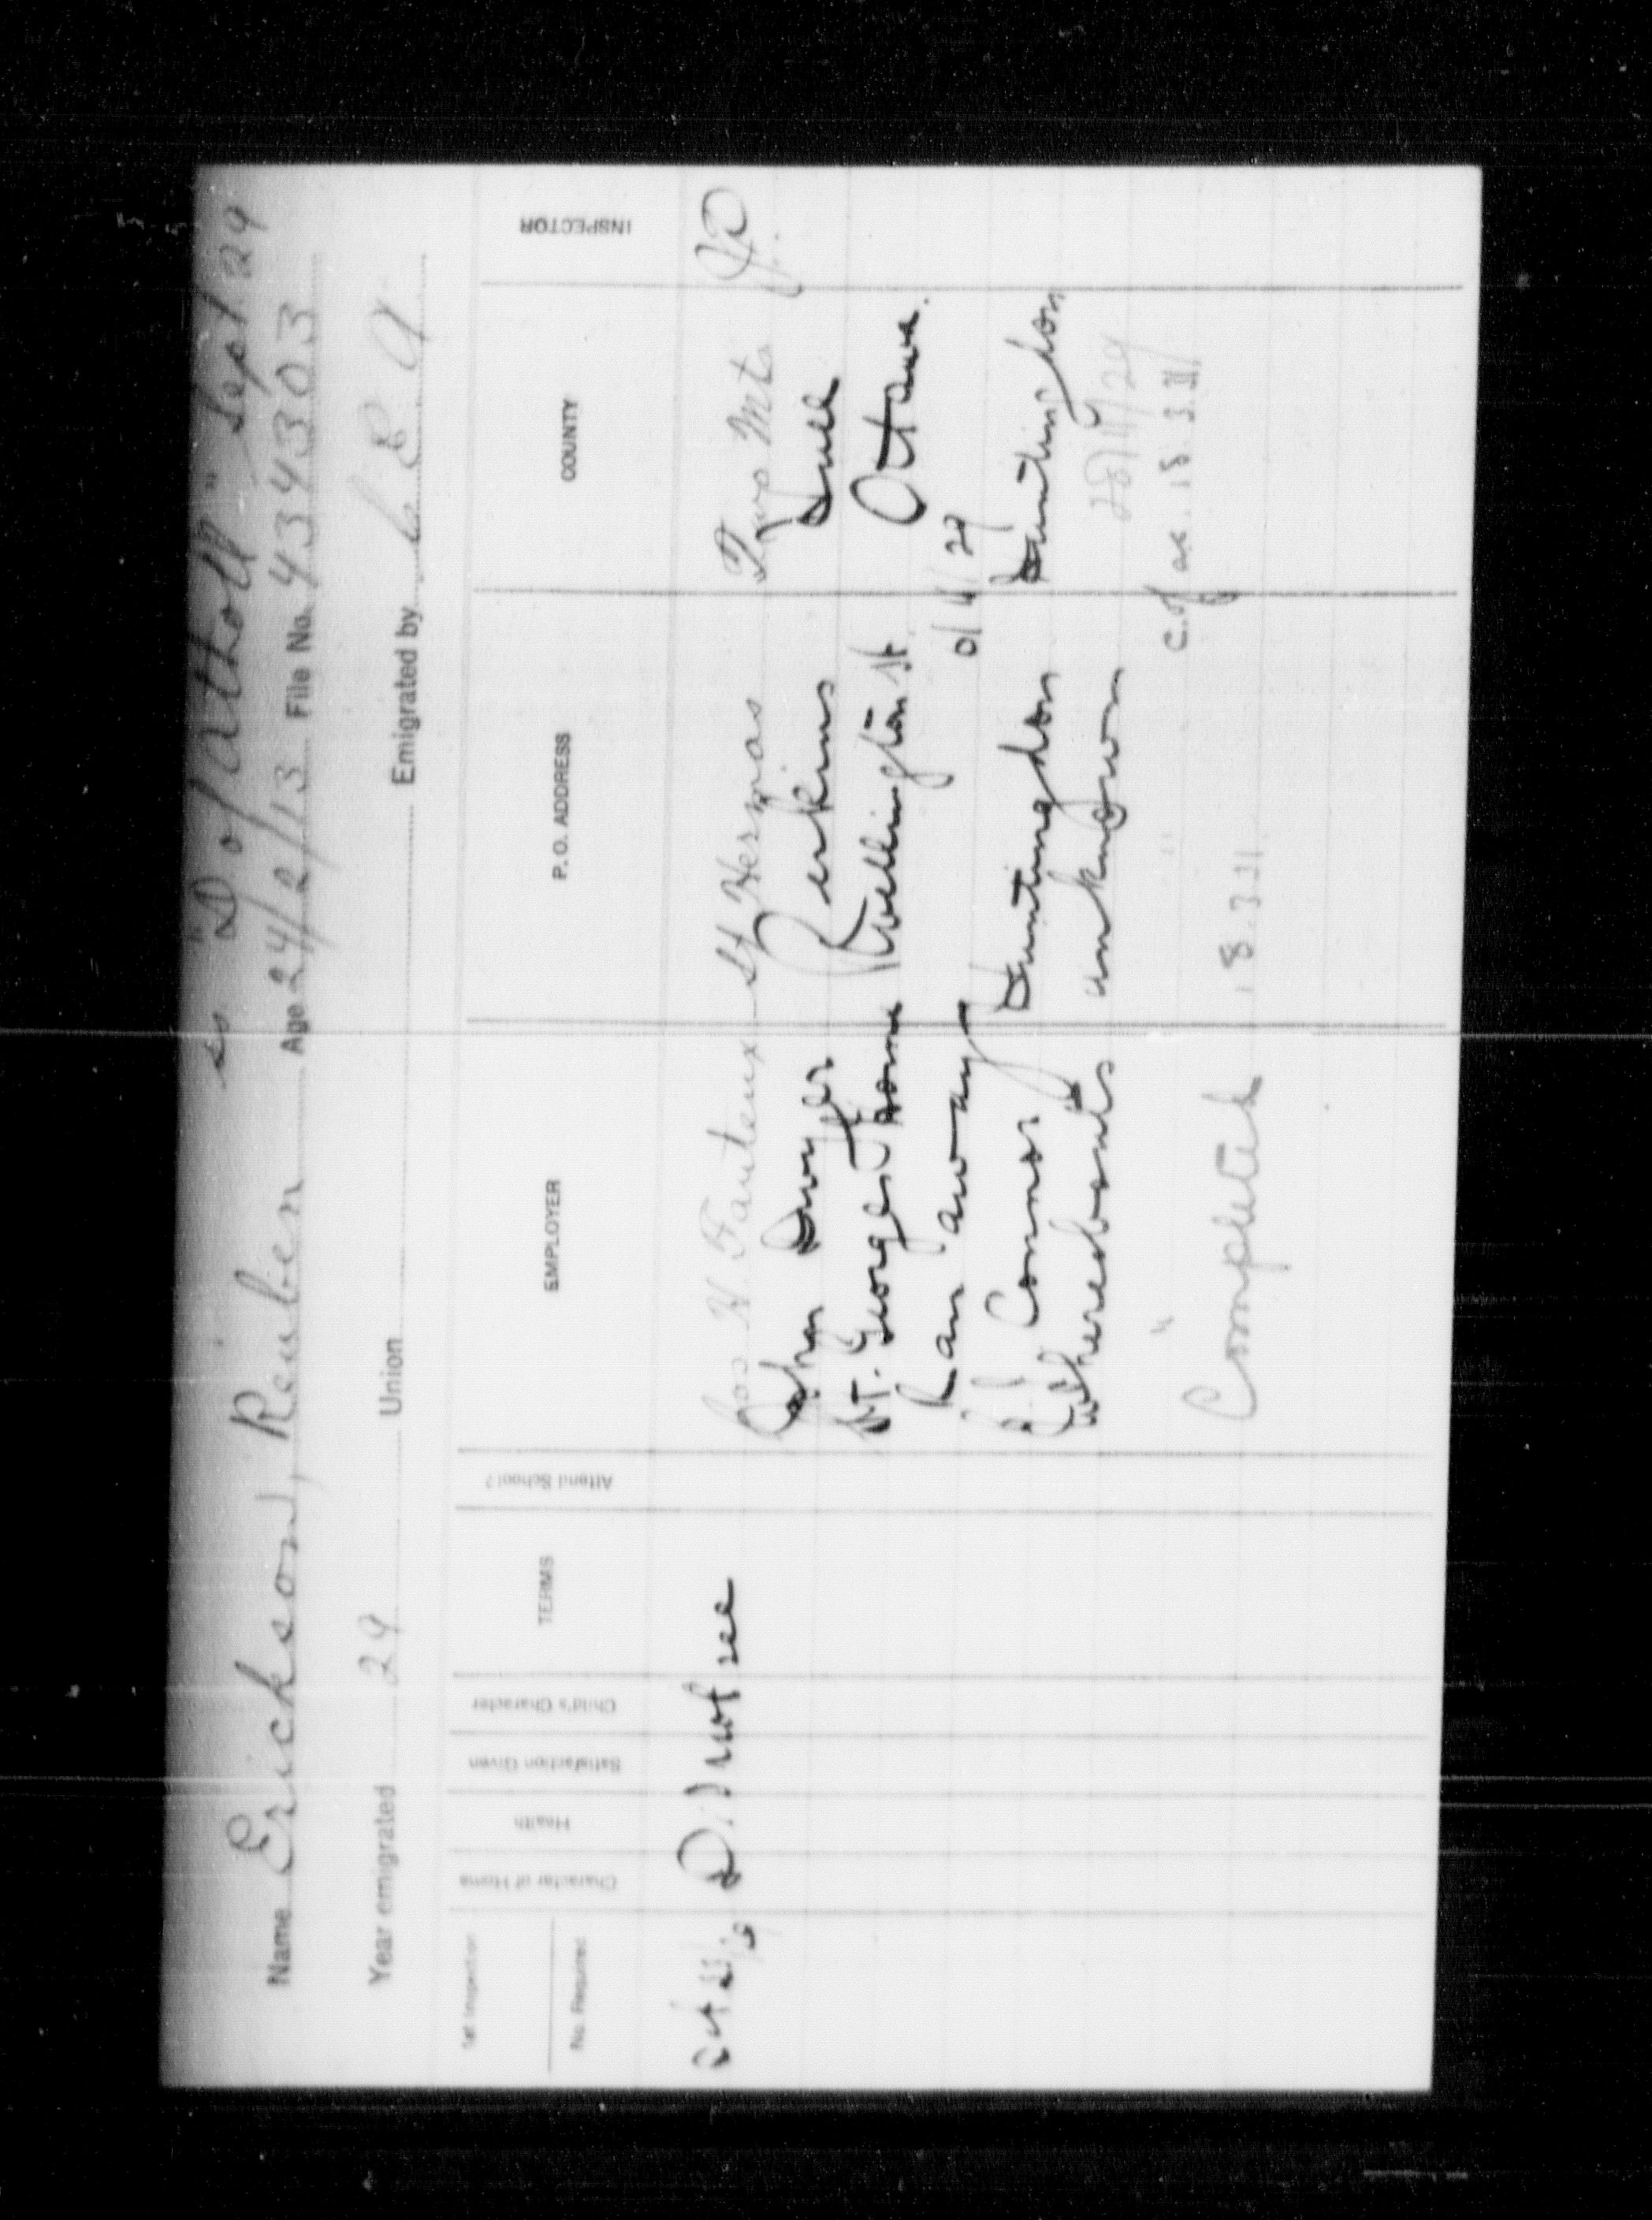 ss "D of Atholl" Sept. 29
Name Erickson, Reuben Age 24/2/13 File No. 434303
Year emigrated 29 Union Emigrated by C E A
1st Inspection
No. Required
Character of Home
Health
Satisfaction Given
Child's Character
TERMS
Attend School?
EMPLOYER
P. O. ADDRESS
COUNTY
INSPECTOR
Did not see Jos H Fauteux St Hermas Two Mts
John Dwyer Perkins Hull
St. Georges Home Wellington St Ottawa.
Ran away
Connor Huntingdon Huntingdon
Whereabouts unknown
" " c. of ac. 18.3.31
Completed 18.3.31